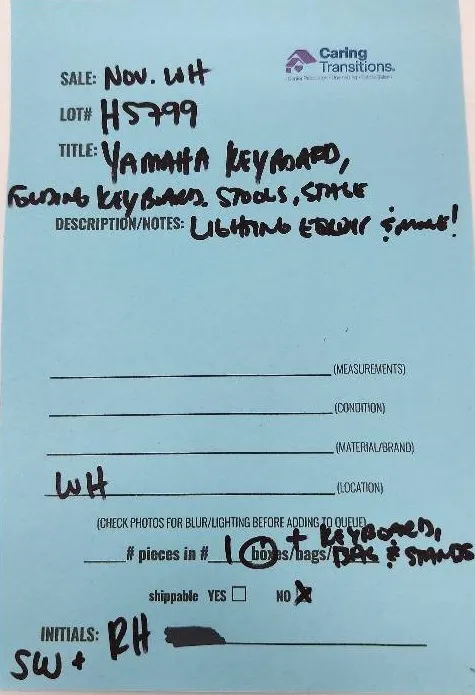 Caring
Transitions.
SALE: NOV. WH
LOT# H5799
TITLE: YAMAHA KEYBOARD,
FOLDING KEYBOARD. STOOLS, STAGE
DESCRIPTION/NOTES: LIGHTING EQUIP & MORE!
(MEASUREMENTS)
(CONDITION)
(MATERIAL/BRAND)
WH (LOCATION)
(CHECK PHOTOS FOR BLUR/LIGHTING BEFORE ADDING TO QUEUE)
+ KEYBOARD,
# pieces in # 1 boxes/bags/ BAG & STANDS
shippable YES NO X
INITIALS: RH
SW +